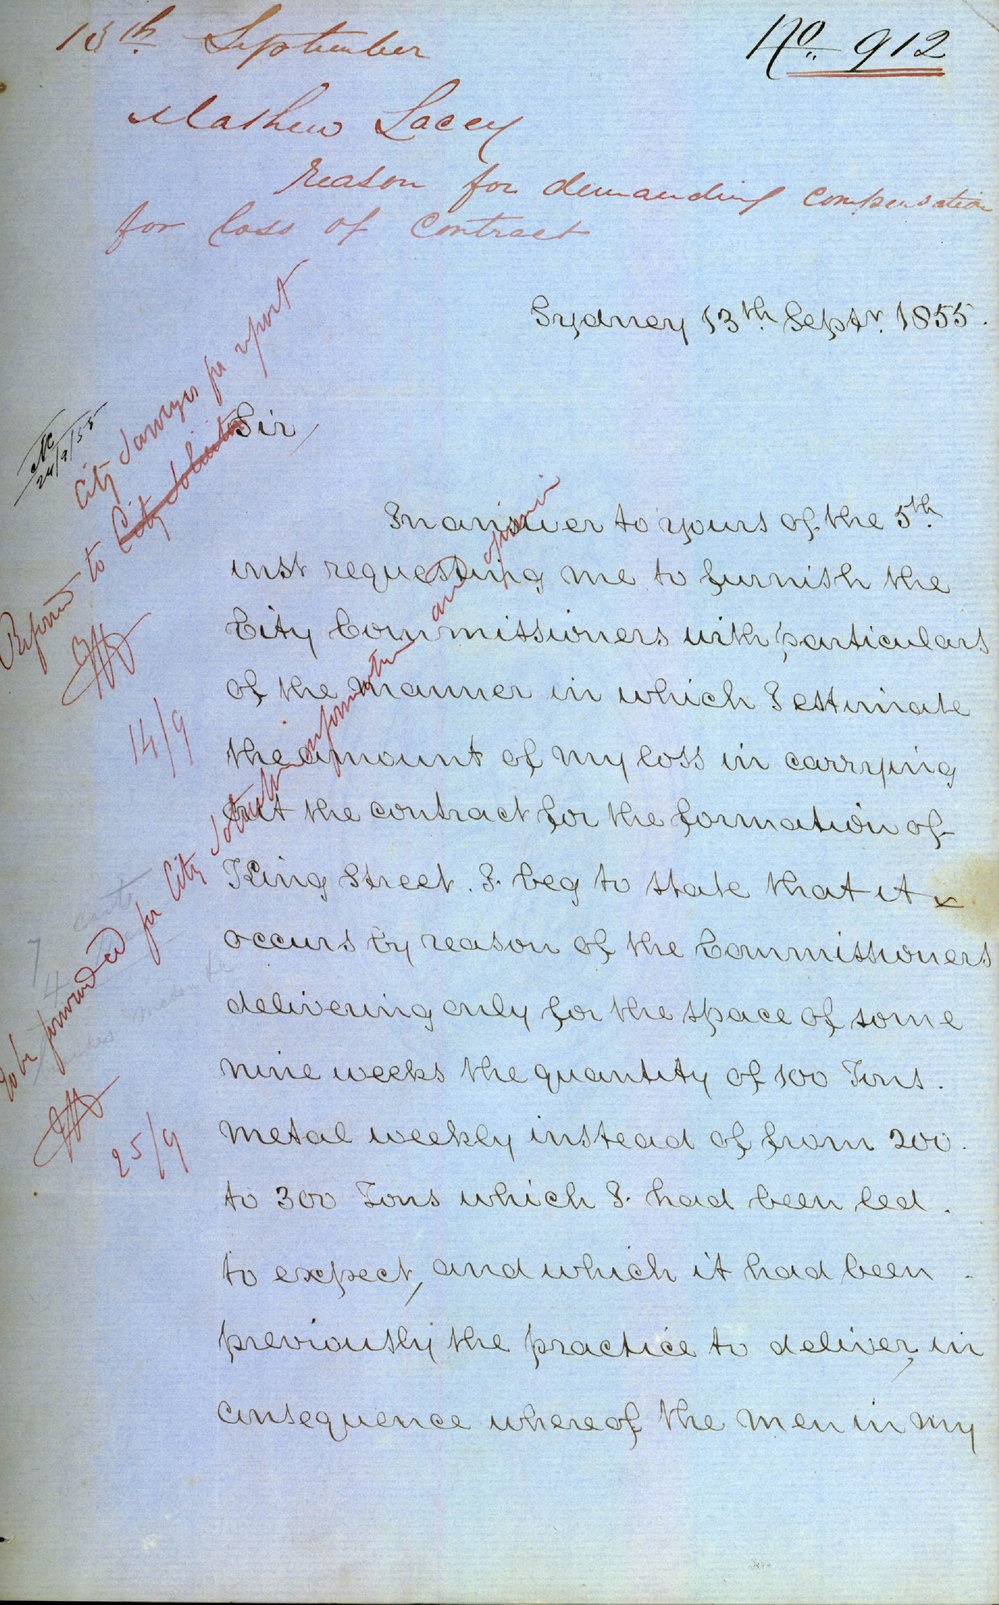 13th September
No. 912
Mathew Lacey
reason for demanding compensation
for loss of contract
Sydney 13th Septr. 1855.
Sir,
In answer to yours of the 5th
inst requesting me to furnish the
City Commissioners with particulars
of the manner in which I estimate
the amount of my loss in carrying
out the contract for the formation of
King Street. I beg to state that it
occurs by reason of the Commissioners
delivering only for the space of some
nine weeks the quantity of 100 Tons.
Metal weekly instead of from 200.
to 300 Tons which I had been led.
to expect, and which it had been
previously the practice to deliver, in
consequence whereof the men in my
24/9/55
City Surveyor for report
Referred to City Solicitor
14/9
To be forwarded for City Solicitor's information and opinion
25/9